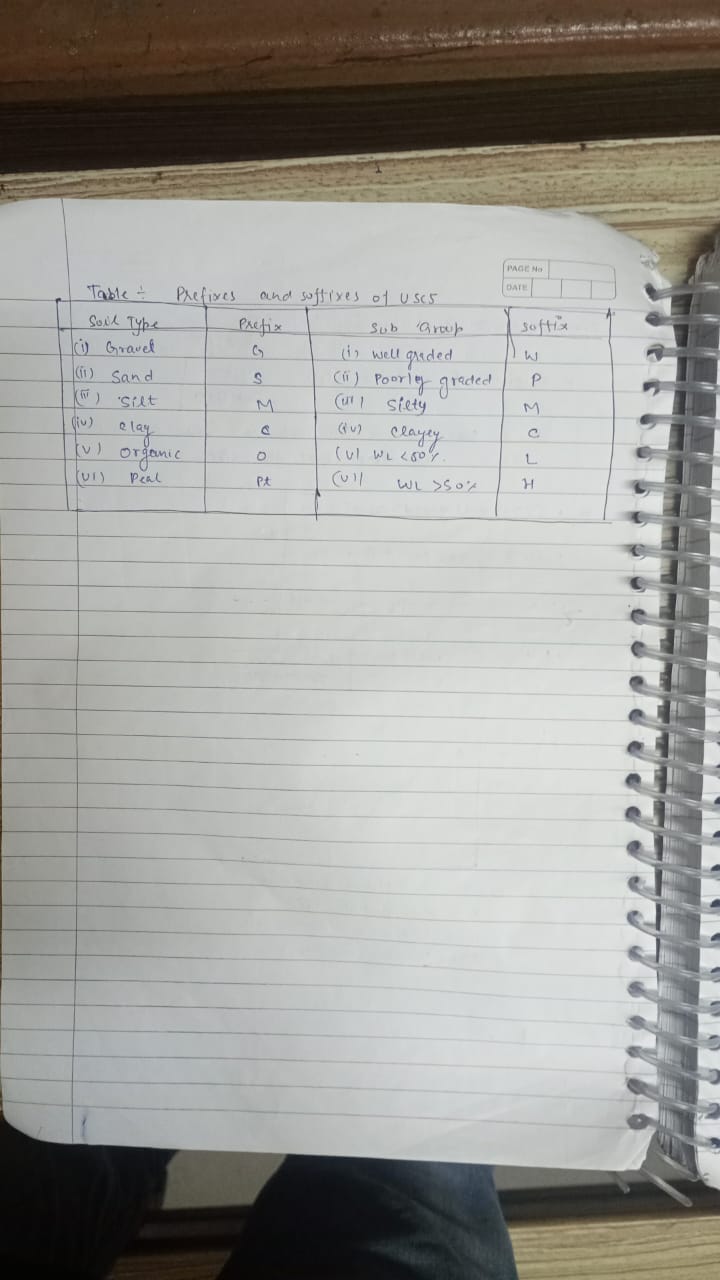 PAGE No
DATE
Table ÷ Prefixes and soffixes of USCS
Soil Type Prefix Sub Group soffix
(i) Gravel G (i) well graded W
(ii) Sand S (ii) Poorly graded P
(iii) Silt M (iii) Silty M
(iv) clay C (iv) clayey C
(v) organic O (v) WL <50% L
(vi) Peat Pt (vi) WL >50% H